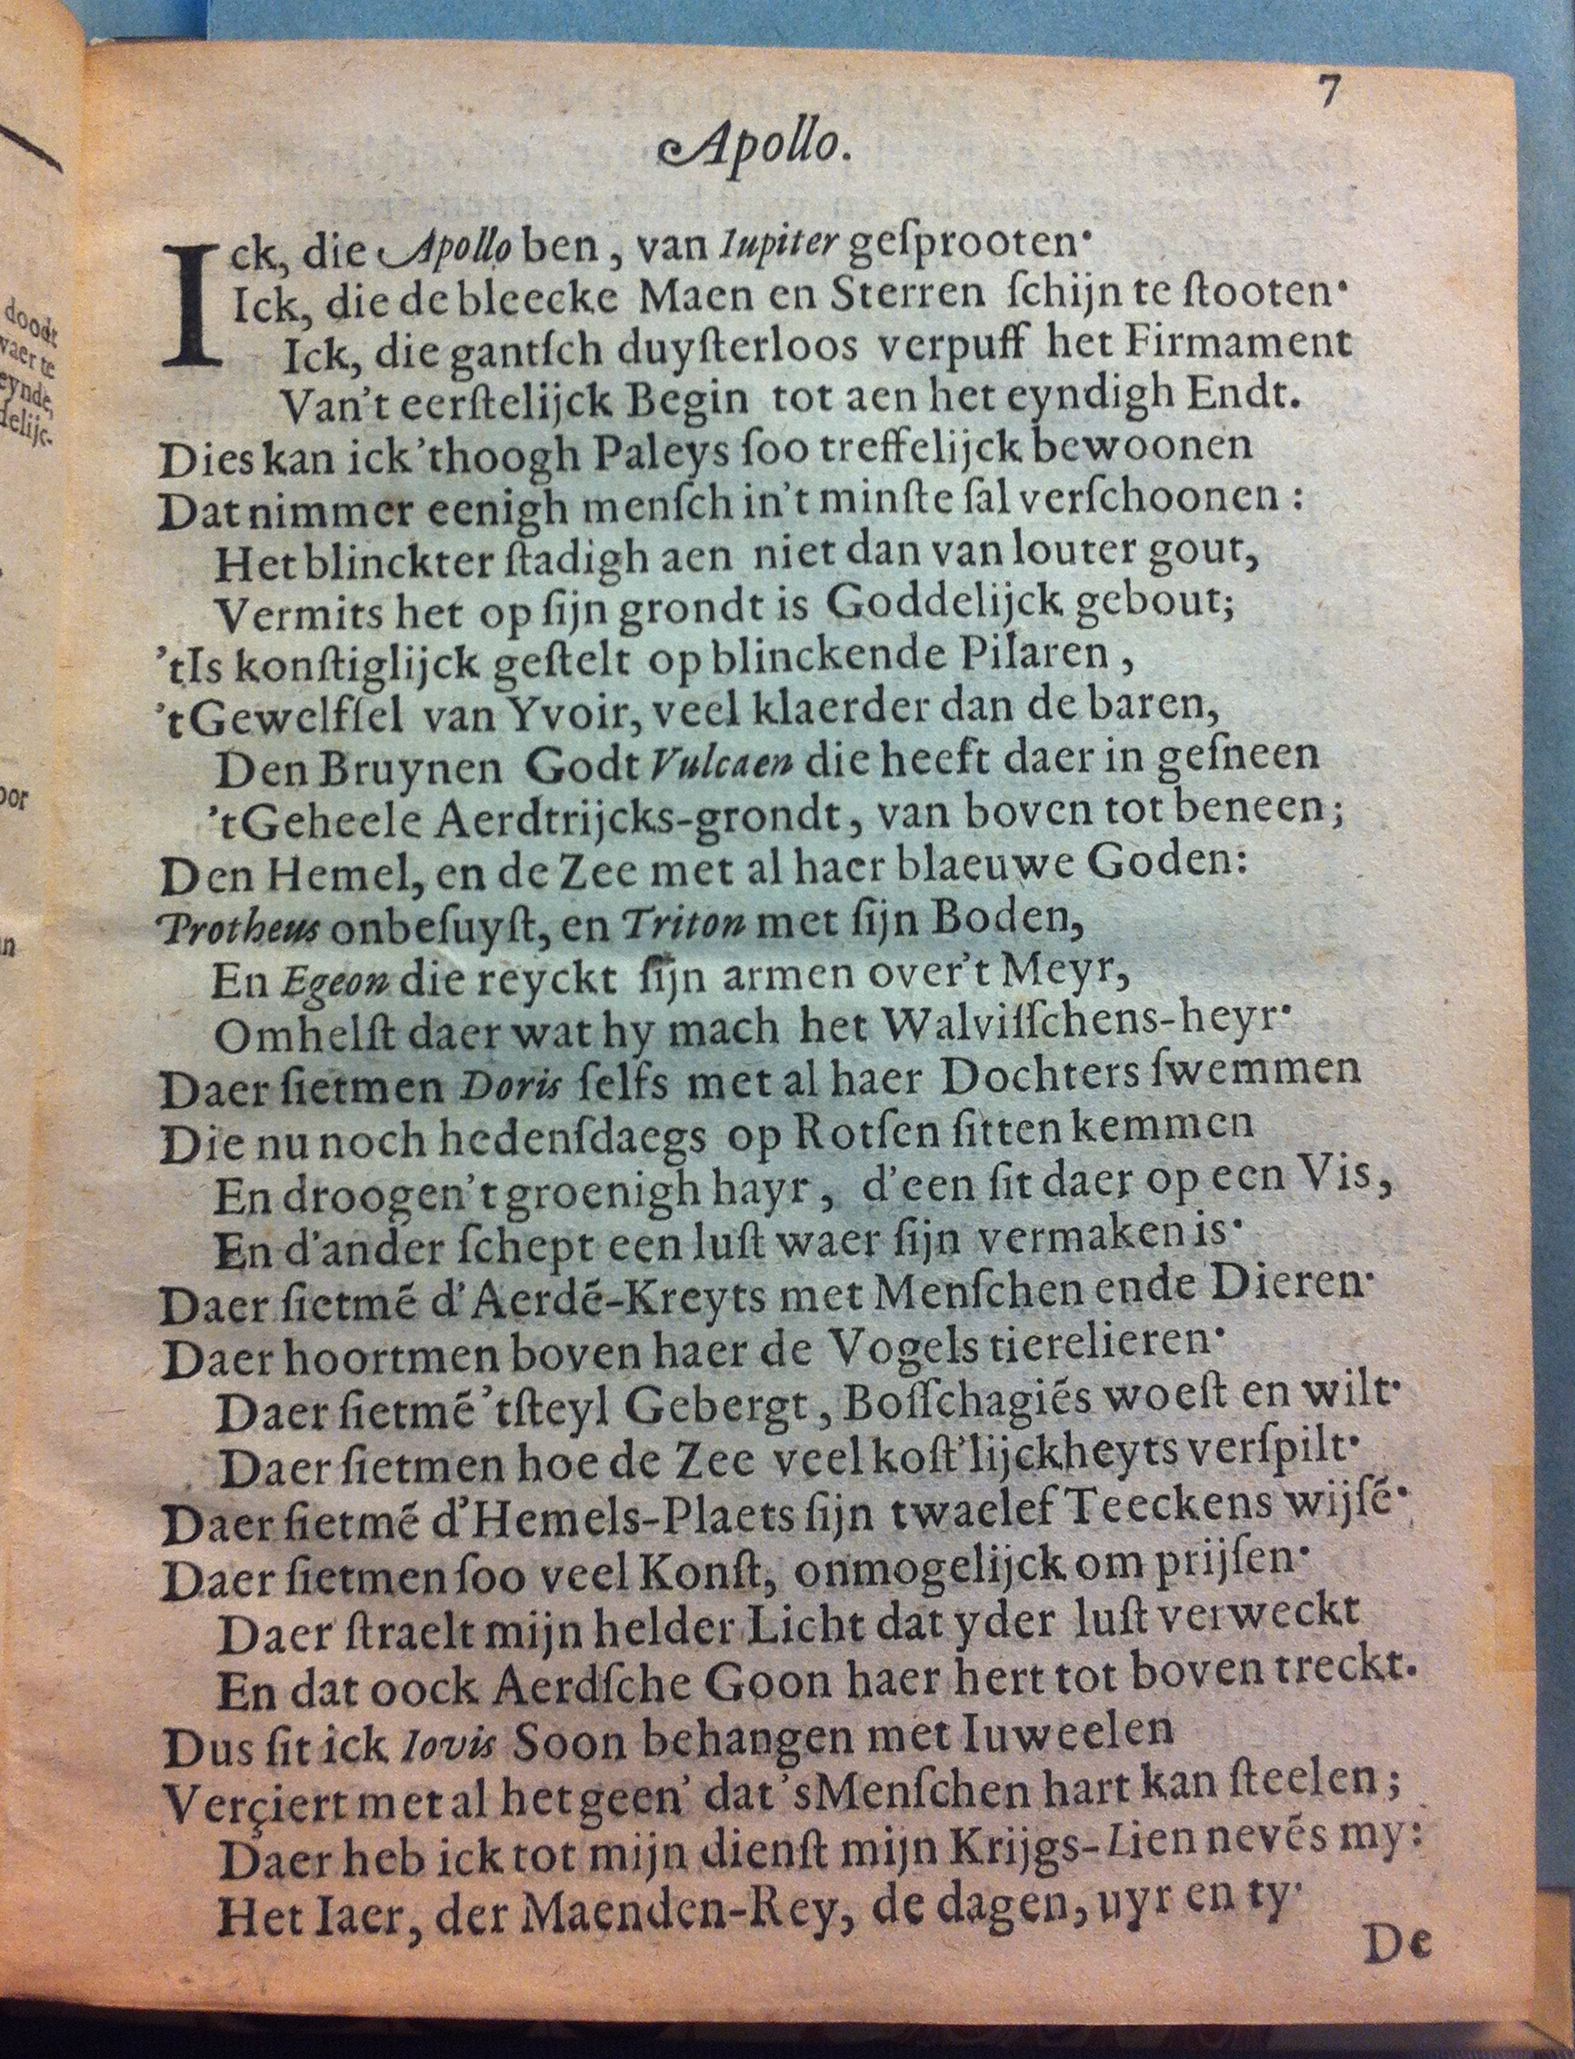 7
Apollo.
Ick, die Apollo ben, van Iupiter geſprooten·
Ick, die de bleecke Maen en Sterren ſchijn te ſtooten·
Ick, die gantſch duyſterloos verpuff het Firmament
Van't eerſtelijck Begin tot aen het eyndigh Endt.
Dies kan ick 'thoogh Paleys ſoo treffelijck bewoonen
Dat nimmer eenigh menſch in't minſte ſal verſchoonen :
Het blinckter ſtadigh aen niet dan van louter gout,
Vermits het op ſijn grondt is Goddelijck gebout;
'tIs konſtiglijck geſtelt op blinckende Pilaren ,
't Gewelfſel van Yvoir, veel klaerder dan de baren,
Den Bruynen Godt Vulcaen die heeft daer in geſneen
't Geheele Aerdtrijcks-grondt, van boven tot beneen;
Den Hemel, en de Zee met al haer blaeuwe Goden:
Protheus onbeſuyſt, en Triton met ſijn Boden,
En Egeon die reyckt ſijn armen over't Meyr,
Omhelſt daer wat hy mach het Walviſſchens-heyr·
Daer ſietmen Doris ſelfs met al haer Dochters ſwemmen
Die nu noch hedenſdaegs op Rotſen ſitten kemmen
En droogen't groenigh hayr, d'een ſit daer op een Vis,
En d'ander ſchept een luſt waer ſijn vermaken is·
Daer ſietmẽ d'Aerdẽ-Kreyts met Menſchen ende Dieren·
Daer hoortmen boven haer de Vogels tierelieren·
Daer ſietmẽ 'tſteyl Gebergt, Boſſchagiẽs woeſt en wilt·
Daer ſietmen hoe de Zee veel koſt'lijckheyts verſpilt·
Daer ſietmẽ d'Hemels-Plaets ſijn twaelef Teeckens wijſẽ·
Daer ſietmen ſoo veel Konſt, onmogelijck om prijſen·
Daer ſtraelt mijn helder Licht dat yder luſt verweckt
En dat oock Aerdſche Goon haer hert tot boven treckt.
Dus ſit ick Iovis Soon behangen met Iuweelen
Verçiert met al het geen' dat 'sMenſchen hart kan ſteelen;
Daer heb ick tot mijn dienſt mijn Krijgs-Lien nevẽs my:
Het Iaer, der Maenden-Rey, de dagen, uyr en ty·
De
doodt
eynde,